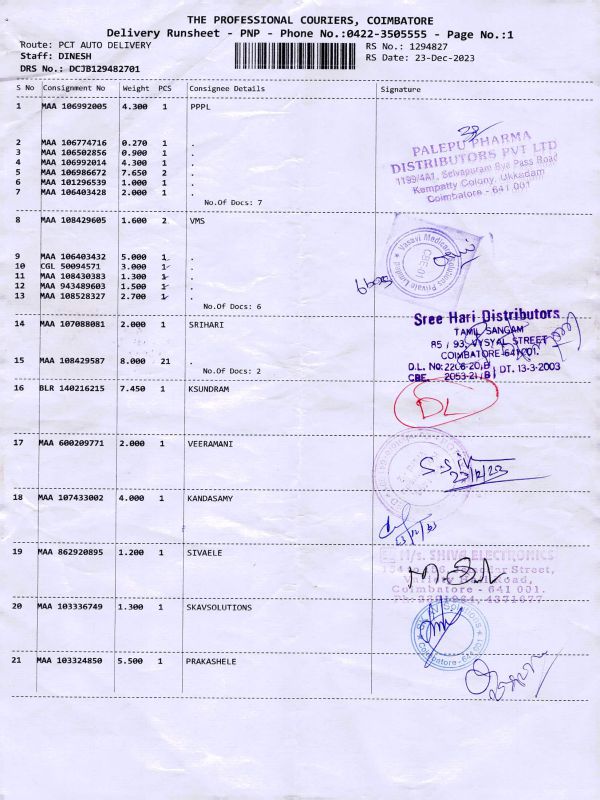 THE PROFESSIONAL COURIERS, COIMBATORE
Delivery Runsheet - PNP - Phone No.:0422-3505555 - Page No.:1
Route: PCT AUTO DELIVERY
RS No.: 1294827
Staff: DINESH
RS Date: 23-Dec-2023
DRS No.: DCJB129482701
S No Consignment No Weight PCS Consignee Details Signature
1 MAA 106992005 4.300 1 PPPL
2 MAA 106774716 0.270 1 .
3 MAA 106502856 0.900 1 .
4 MAA 106992014 4.300 1 .
5 MAA 106986672 7.650 2 .
6 MAA 101296539 1.000 1 .
7 MAA 106403428 2.000 1 .
No.Of Docs: 7
PALEPU PHARMA
DISTRIBUTORS PVT LTD
1199/4A1, Selvapuram Bye Pass Road
Kempatty Colony, Ukkadam
Coimbatore - 641 001
8 MAA 108429605 1.600 2 VMS
9 MAA 106403432 5.000 1 .
10 CGL 50094571 3.000 1 .
11 MAA 108430383 1.300 1 .
12 MAA 943489603 1.500 1 .
13 MAA 108528327 2.700 1 .
No.Of Docs: 6
Vasavi Medical Solutions Private Limited
CBE-01
14 MAA 107088081 2.000 1 SRIHARI
15 MAA 108429587 8.000 21 .
No.Of Docs: 2
Sree Hari Distributors
TAMIL SANGAM
85 / 93, VYSYAL STREET
COIMBATORE-641001.
D.L. NO: 2208-20,B
CBE. 2053-21,B DT. 13-3-2003
16 BLR 140216215 7.450 1 KSUNDRAM
DL
17 MAA 600209771 2.000 1 VEERAMANI
23/12/23
18 MAA 107433002 4.000 1 KANDASAMY
23/12/23
19 MAA 862920895 1.200 1 SIVAELE
M/s. SHIVA ELECTRONICS
Street,
Road,
Coimbatore - 641 001.
20 MAA 103336749 1.300 1 SKAVSOLUTIONS
SKAV Solutions
Coimbatore-641 001
21 MAA 103324850 5.500 1 PRAKASHELE